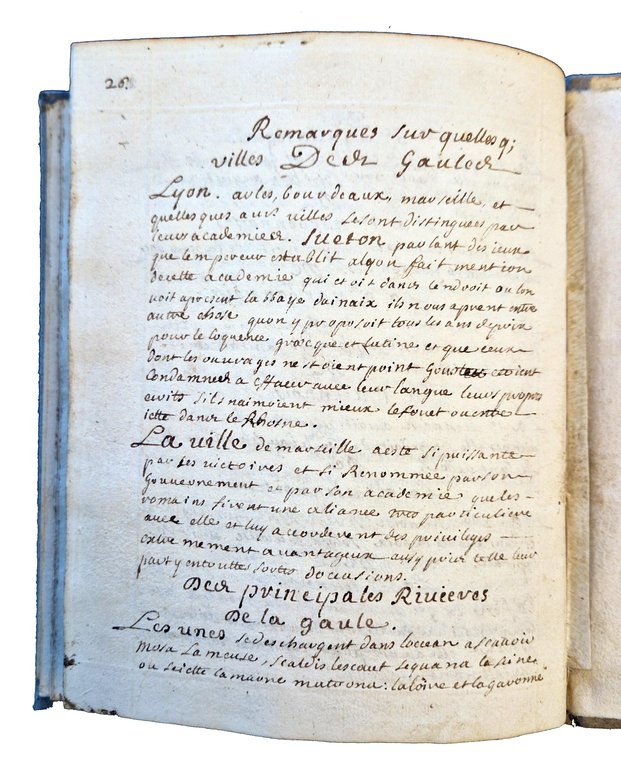 26.
Remarques sur quellesq;
villes Des Gaules
Lyon. arles, bourdeaux, marseille, et
quellesques aures villes se sont distinguees par
leurs academies. Sueton parlant des ieux
que lempereur establit alyon fait mention
decette academie qui etoit dans lendroit ou lon
voit apresent labbaye dainaix ils nous aprent entre
autre chose quon y proposoit tous les ans des prix
pour leloquence grœcque et latine et que ceux
dont les ouvrages nestoient point goustes etoient
condamnes a effacer avec leur langue leurs propres
ecrits sils naimoient mieux le fouet ou entre
iette dans le Rhosne.
La ville de marseille aeste si puissante
par ses victoires et si Renommée par son
gouvernement et par son academie que les
romains firent une aliance particuliere
avec elle et luy accorderent des privileges
extremement avantageux aussy pour telle leur
part y en toutes sortes doccasions.
Des principales Rivieres
De la gaule.
Les unes sedeschargent dans locean ascavoir
mosa la meuse, scaldis lescaut sequana la seine
ou se iette lamarne matrona: laloire et lagaronne